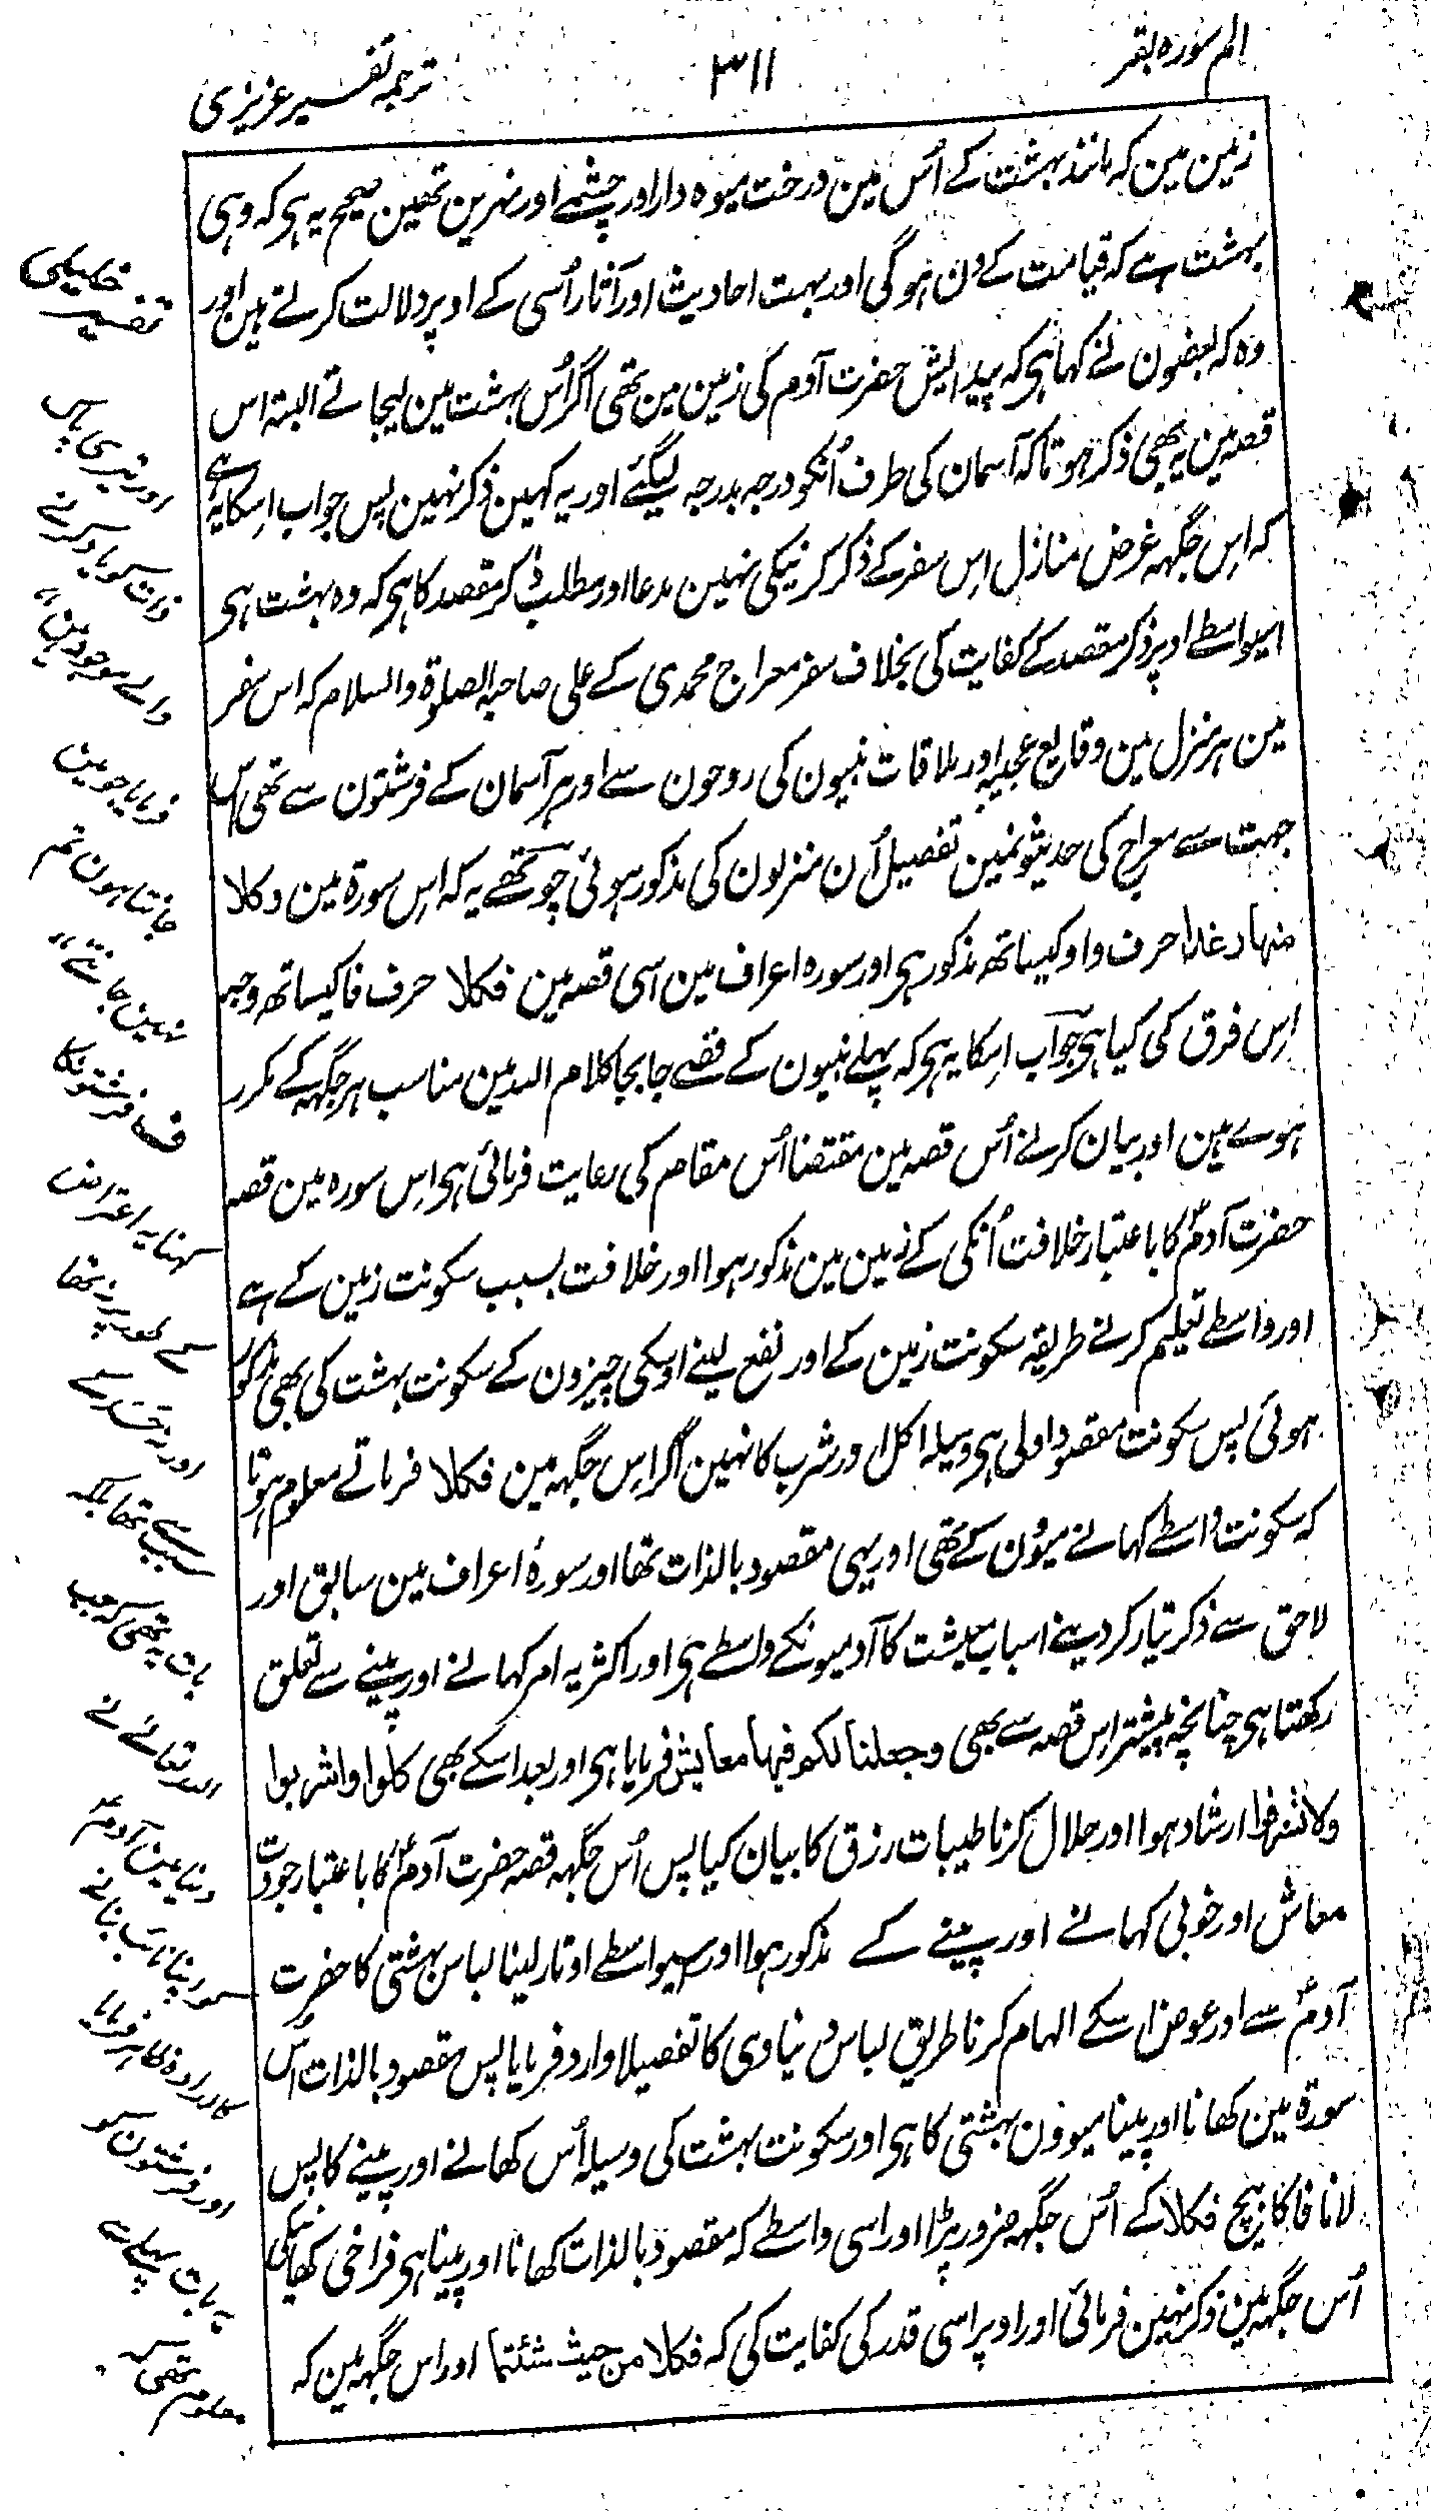 الم سورہ بقر
۳۱۱
ترجمہ تفسیر عزیزی
زمین مین کہ مانند بہشت کے اُس مین درخت میوہ دار اور چشمے اور نہرین تھین صحیح یہ ہی کہ وہی
بہشت ہے کہ قیامت کے دن ہوگی اور بہت احادیث اور آثار اُسی کے اوپر دلالت کرتے ہین اور
وہ کہ بعضون نے کہا ہی کہ پیدایش حضرت آدم کی زمین مین تھی اگر اُس بہشت مین لیجاتے البتہ اس
قصہ مین یہ بھی ذکر ہوتا کہ آسمان کی طرف اُنکو درجہ بدرجہ لیگئے اور یہ کہین ذکر نہین پس جواب اسکا یہ ہے
کہ اِس جگہہ غرض منازل اِس سفر کے ذکر کرنیکی نہین مدعا اور مطلب ذکر مقصد کا ہی کہ وہ بہشت ہی
اسیواسطے اوپر ذکر مقصد کے کفایت کی بخلاف سفر معراج محمدی کے علی صاحبہ الصلوۃ والسلام کہ اس سفر
مین ہر منزل مین وقایع عجیبہ اور ملاقات نبیون کی روحون سے اور ہر آسمان کے فرشتون سے تھی اس
جہت سے معراج کی حدیثونمین تفصیل اُن منزلون کی مذکور ہوئی چوتھے یہ کہ اِس سورۃ مین وکلا
منہا رغدا حرف واو کیساتھ مذکور ہی اور سورہ اعراف مین اسی قصہ مین فکلا حرف فا کیساتھ وجہ
اِس فرق کی کیا ہی جواب اسکا یہ ہی کہ پہلے نبیون کے قصے جابجا کلام اللہ مین مناسب ہر جگہہ کے مکرر
ہوے ہین اور بیان کرنے اُس قصہ مین مقتضا اُس مقام کی رعایت فرمائی ہی اِس سورہ مین قصہ
حضرت آدمؑ کا باعتبار خلافت اُنکی کے زمین مین مذکور ہوا اور خلافت بسبب سکونت زمین کے ہے
اور واسطے تعلیم کرنے طریقہ سکونت زمین کے اور نفع لینے اوسکی چیزون کے سکونت بہشت کی بھی مذکور
ہوئی پس سکونت مقصود اولی ہی وسیلہ اکل اور شرب کا نہین اگر اِس جگہہ مین فکلا فرماتے معلوم ہوتا
کہ سکونت واسطے کہانے میوون کے تھی اور یہی مقصود بالذات تھا اور سورۂ اعراف مین سابق اور
لاحق سے ذکر تیار کردینے اسباب معیشت کا آدمیونکے واسطے ہی اور اکثر یہ امر کہانے اور پینے سے تعلق
رکھتا ہی چنانچہ پیشتر اِس قصہ سے بھی وجعلنا لکم فیہا معایش فرمایا ہی اور بعد اسکے بھی کلوا واشربوا
ولا تسرفوا ارشاد ہوا اور حلال کرنا طیبات رزق کا بیان کیا پس اُس جگہہ قصہ حضرت آدمؑ کا باعتبار جودت
معاش اور خوبی کہانے اور پینے کے مذکور ہوا اور اسیواسطے اوتار لینا لباس بہشتی کا حضرت
آدمؑ سے اور عوض اسکے الہام کرنا طریق لباس دنیاوی کا تفصیلا وارد فرمایا پس مقصود بالذات اس
سورۃ مین کھانا اور پینا میوون بہشتی کا ہی اور سکونت بہشت کی وسیلہ اُس کھانے اور پینے کا پس
لانا فا کا بیچ فکلا کے اُس جگہہ ضرور پڑا اور اسی واسطے کہ مقصود بالذات کھانا اور پینا ہی فراخی کھانیکی
اُس جگہہ مین ذکر نہین فرمائی اور اوپر اسی قدر کی کفایت کی کہ فکلا من حیث شئتما اور اس جگہہ مین کہ
تفسیر خلیلی
اور تیری پاک
ذات کو یاد کرنے
والے موجود ہین"
فرمایا جو مین
جانتا ہون تم
نہین جانتے"
ف فرشتونکا
کہنا یہ اعتراض
کے طور پر نہ تھا
اور نہ حسد کے
سبب سے تھا بلکہ
بات یہ تھی کہ جب
اللہ تعالےٰ نے
دنیا مین آدمؑ
کو اپنا نائب بنانے
کا ارادہ ظاہر فرمایا
اور فرشتون کو
یہ بات پہلے سے
معلوم تھی کہ